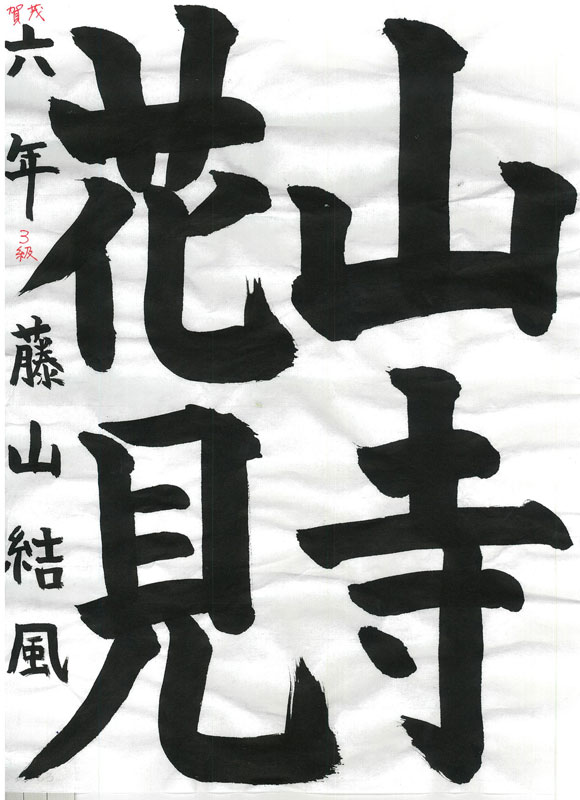 山寺
花見
賀茂
六年 3級 藤山結風